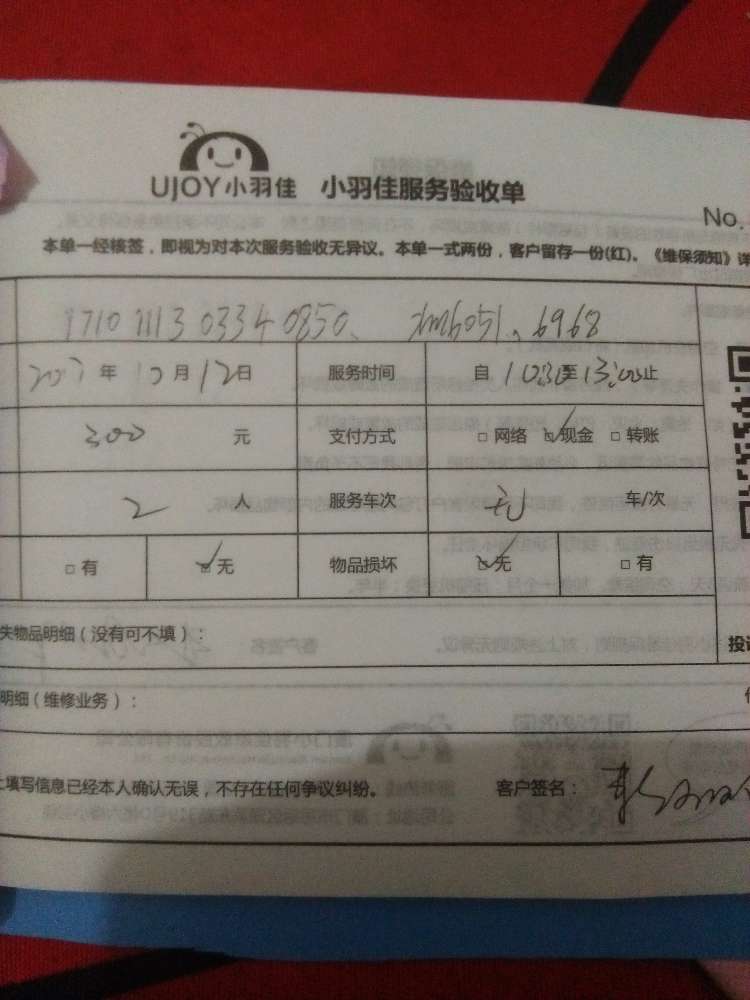 UJOY小羽佳 小羽佳服务验收单
No.
本单一经核签，即视为对本次服务验收无异议。本单一式两份，客户留存一份(红)。《维保须知》详
1710 1113 0334 0850、 xm6051、6968
2017年10月12日 服务时间 自10:30至13:00止
300 元 支付方式 □网络 ☑现金 □转账
2 人 服务车次 无 车/次
□有 ☑无 物品损坏 ☑无 □有
失物品明细（没有可不填）： 投
明细（维修业务）：
填写信息已经本人确认无误，不存在任何争议纠纷。 客户签名：